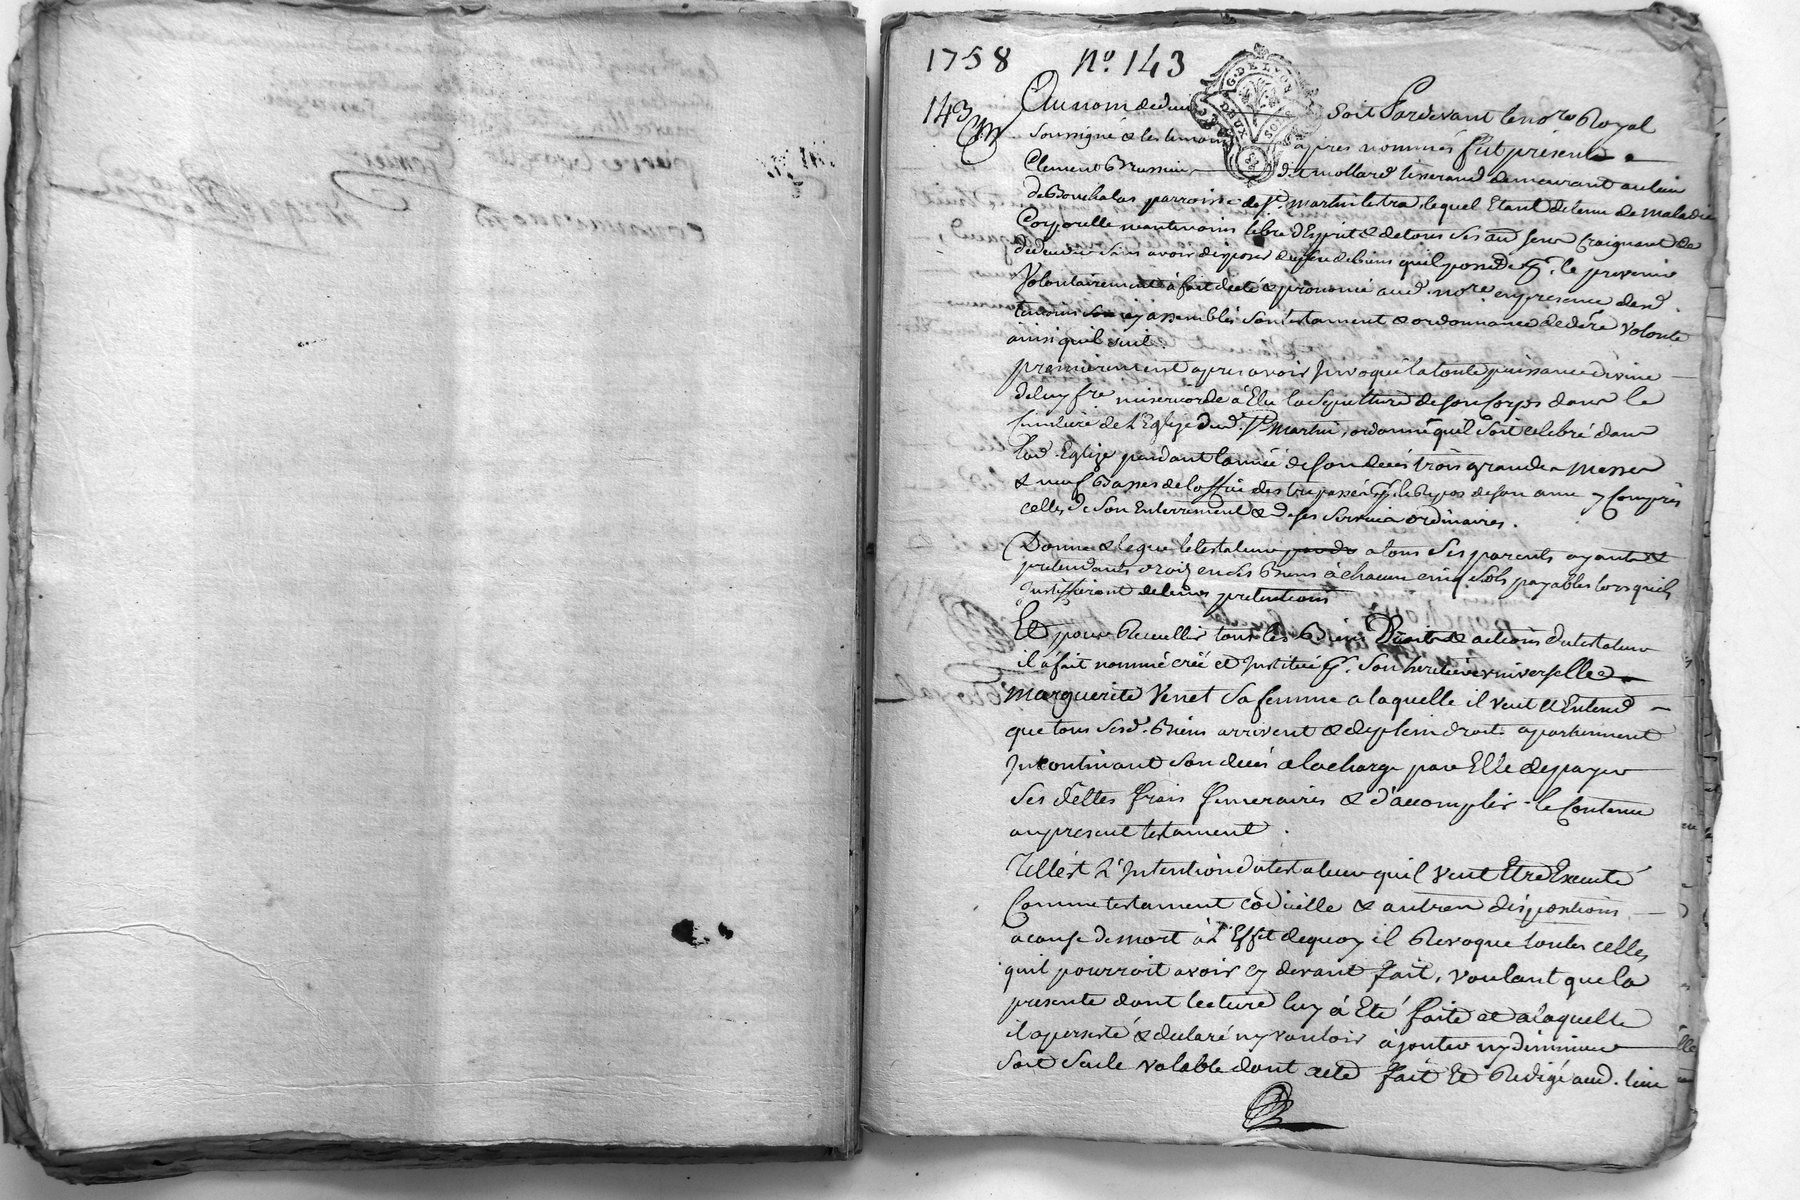 1758 nº. 143
143
Au nom de dieu soit Pardevant le no.re Royal
soussigné & les temoins apres nommés fut présent
Clement Brassein dit mollard tisserand demeurant au lieu
de Bouchalas parroisse de S.t martin lestra lequel Etant detenu de maladie
Corporelle neantmoins libre d'Esprit & de tous ses sens Craignant de
deceder sans avoir disposé du peu de biens quil possede p.r le prevenir
Volontairement à fait dicté & prononcé aud. no.re en presence desd.
temoins assemblés son testament & ordonnance de d.re Volonté
ainsi quil suit.
premierement apres avoir Invoqué la toute puissance divine
de luy f.re misericorde à Elu la sepulture de son Corps dans le
Cimitiere de L'Eglise dud. S.t Martin, ordonne quil soit celebré dans
lad. Eglize pendant l'année de son deces trois grandes Messes
& neuf Basses de l'office des trepassés p.r le Repos de son ame y Compris
celles de son Enterrement & de ses services ordinaires.
Donne & legue le testateur a tous ses parents ayants &
pretendants droit en ses Biens à chacun cinq sols payables lorsquils
Justiffieront de leurs pretentions
Et pour Recuellir tous les Biens Droits & actions du testateur
il à fait nommé créé et Institué p.r son heritiere universelle
Marguerite Venet sa femme a laquelle il veut & Entend
que tous sesd. Biens arrivent & de plein droit apartiennent
Incontinant son deces a la charge par Elle de payer
ses dettes frais funeraires & d'accomplir le Contenu
au present testament.
Telle est L'Intention du testateur quil veut Etre Executé
Comme testament codicille & autres dispositions
a cause de mort à L'Effet de quoy il Revoque toutes celles
quil pourroit avoir cy devant fait, voulant que la
presente dont lecture luy à Eté faite et a laquelle
il a persisté & declaré ny vouloir ajouter ny diminuer
soit seule valable dont acte fait Et Redigé aud. lieu